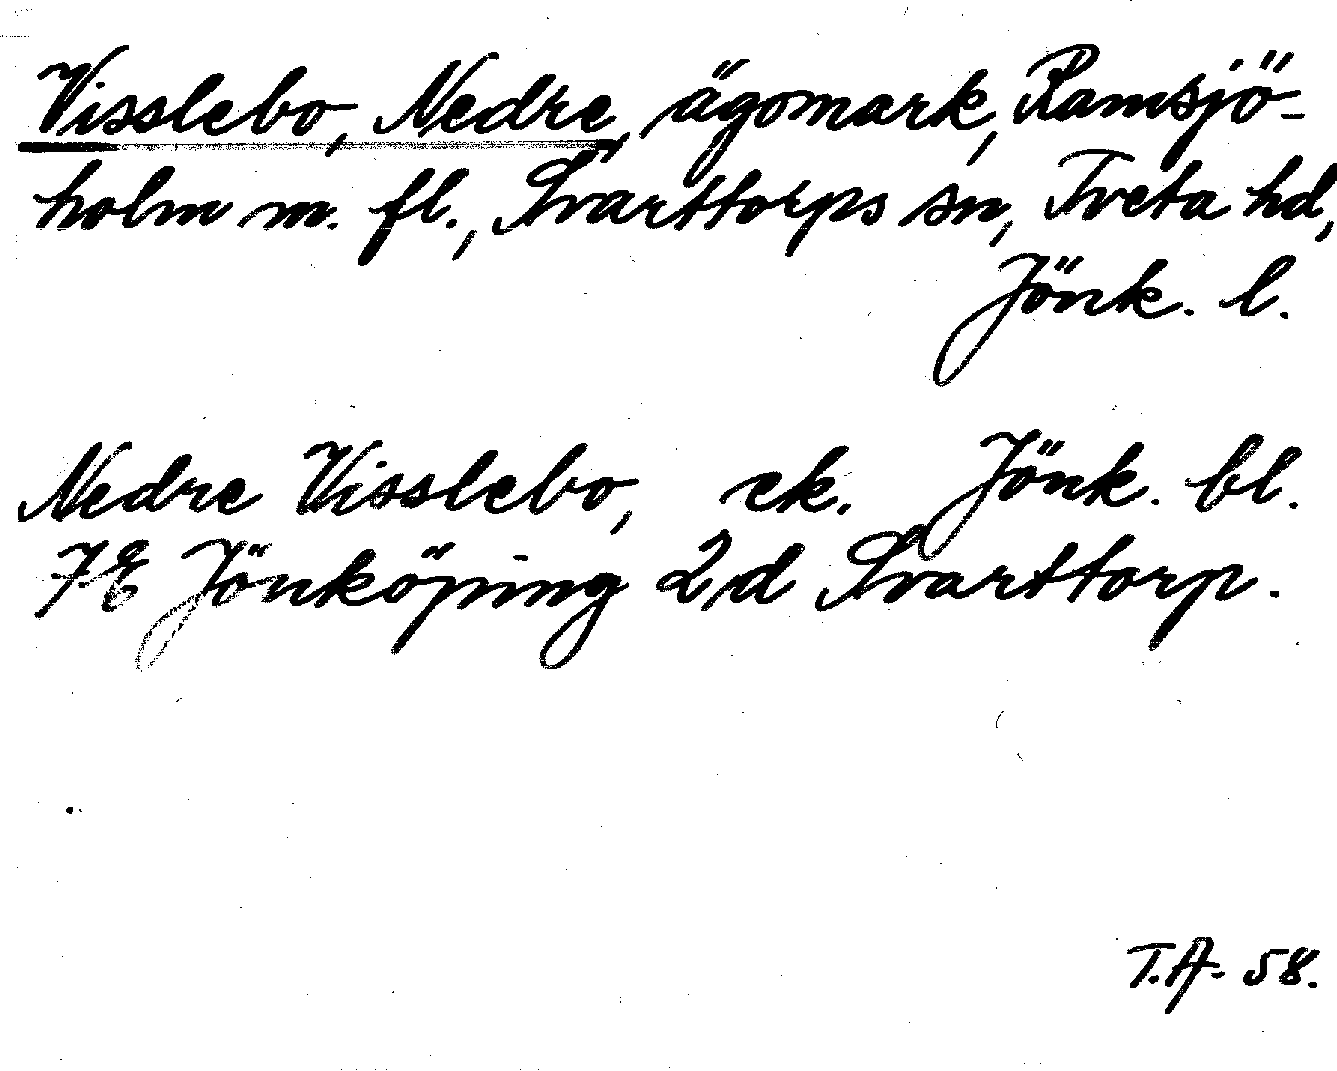 Visslebo, Nedre, ägomark, Ramsjö-
holm m. fl., Svarttorps sn, Tveta hd,
Jönk. l.
Nedre Visslebo, ek. Jönk. bl.
7E Jönköping 2d Svarttorp.
T.A. 58.